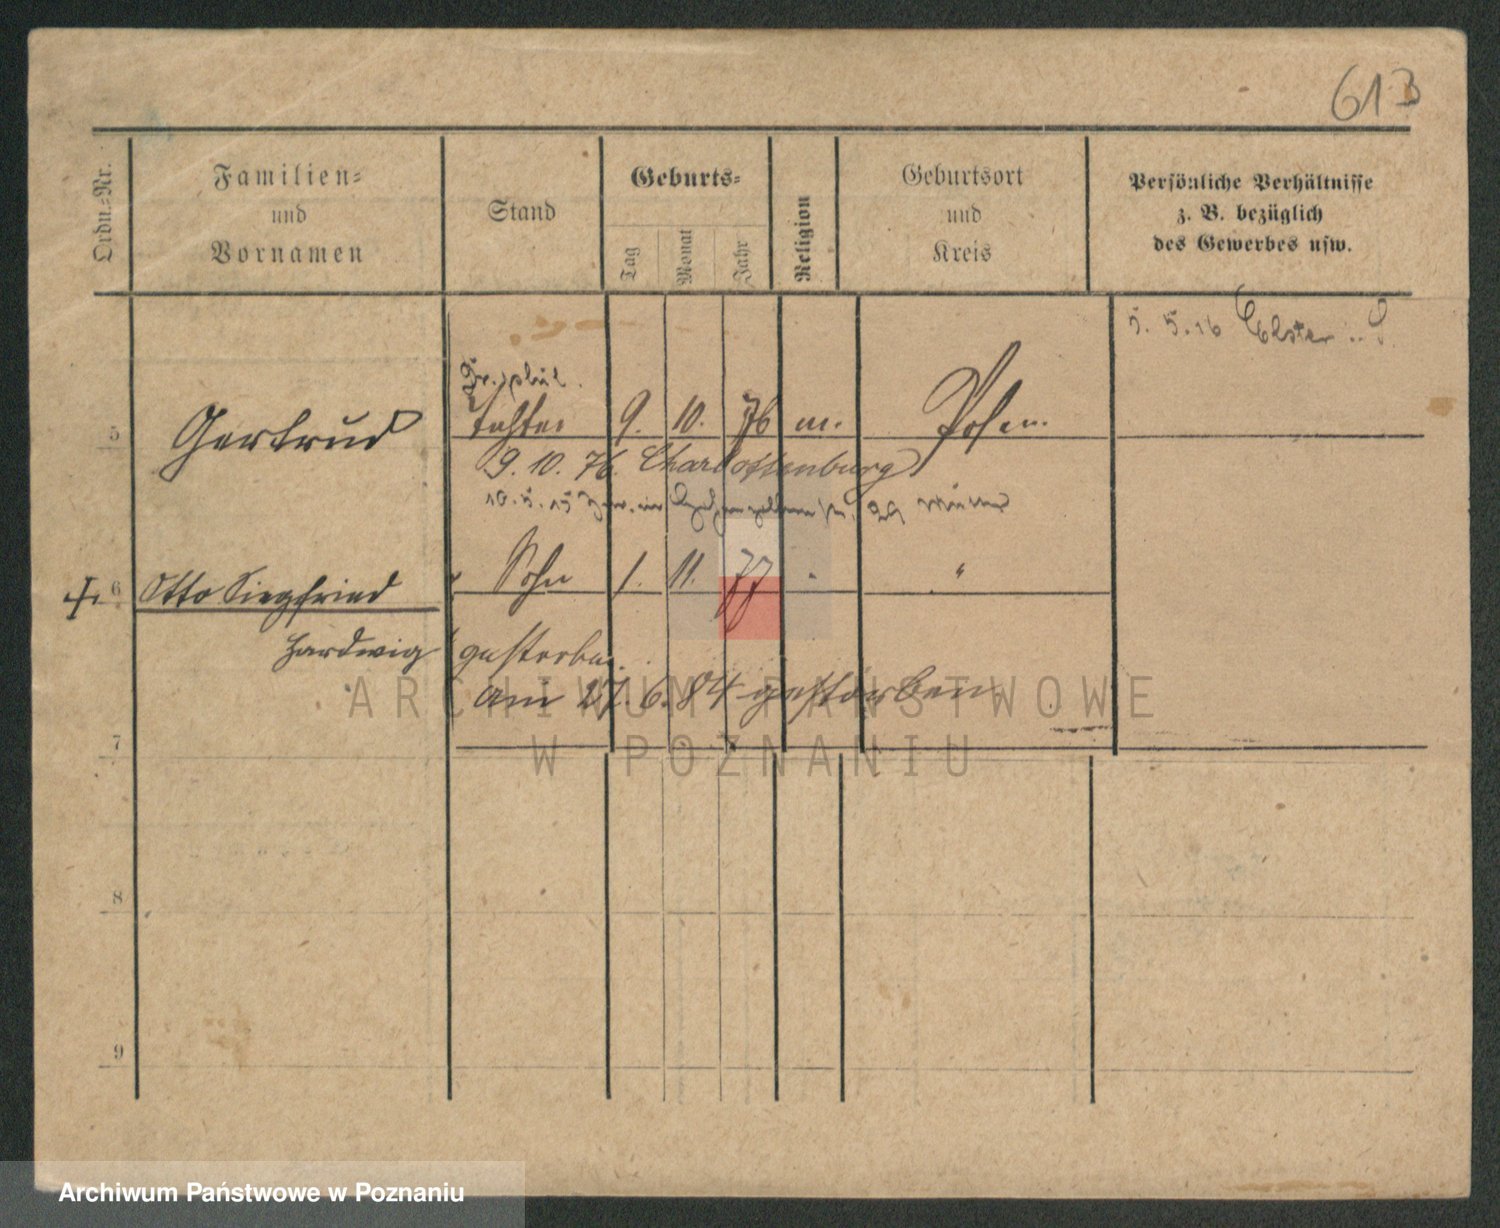 613
Ordn.-Nr.
Familien-
und
Vornamen
Stand
Geburts-
Tag
Monat
Jahr
Religion
Geburtsort
und
Kreis
Persönliche Verhältnisse
z. B. bezüglich
des Gewerbes usw.
5. 5. 16
Dr. phil.
5 Gertrud Tochter 9. 10. 76 m. Posen.
9. 10. 76. Charlottenburg
10. 5. 15
6 Otto Siegfried Sohn 1. 11. 77 " "
Hardwig gestorben.
am 27. 6. 84 gestorben
7
8
9
ARCHIWUM PAŃSTWOWE
W POZNANIU
Archiwum Państwowe w Poznaniu